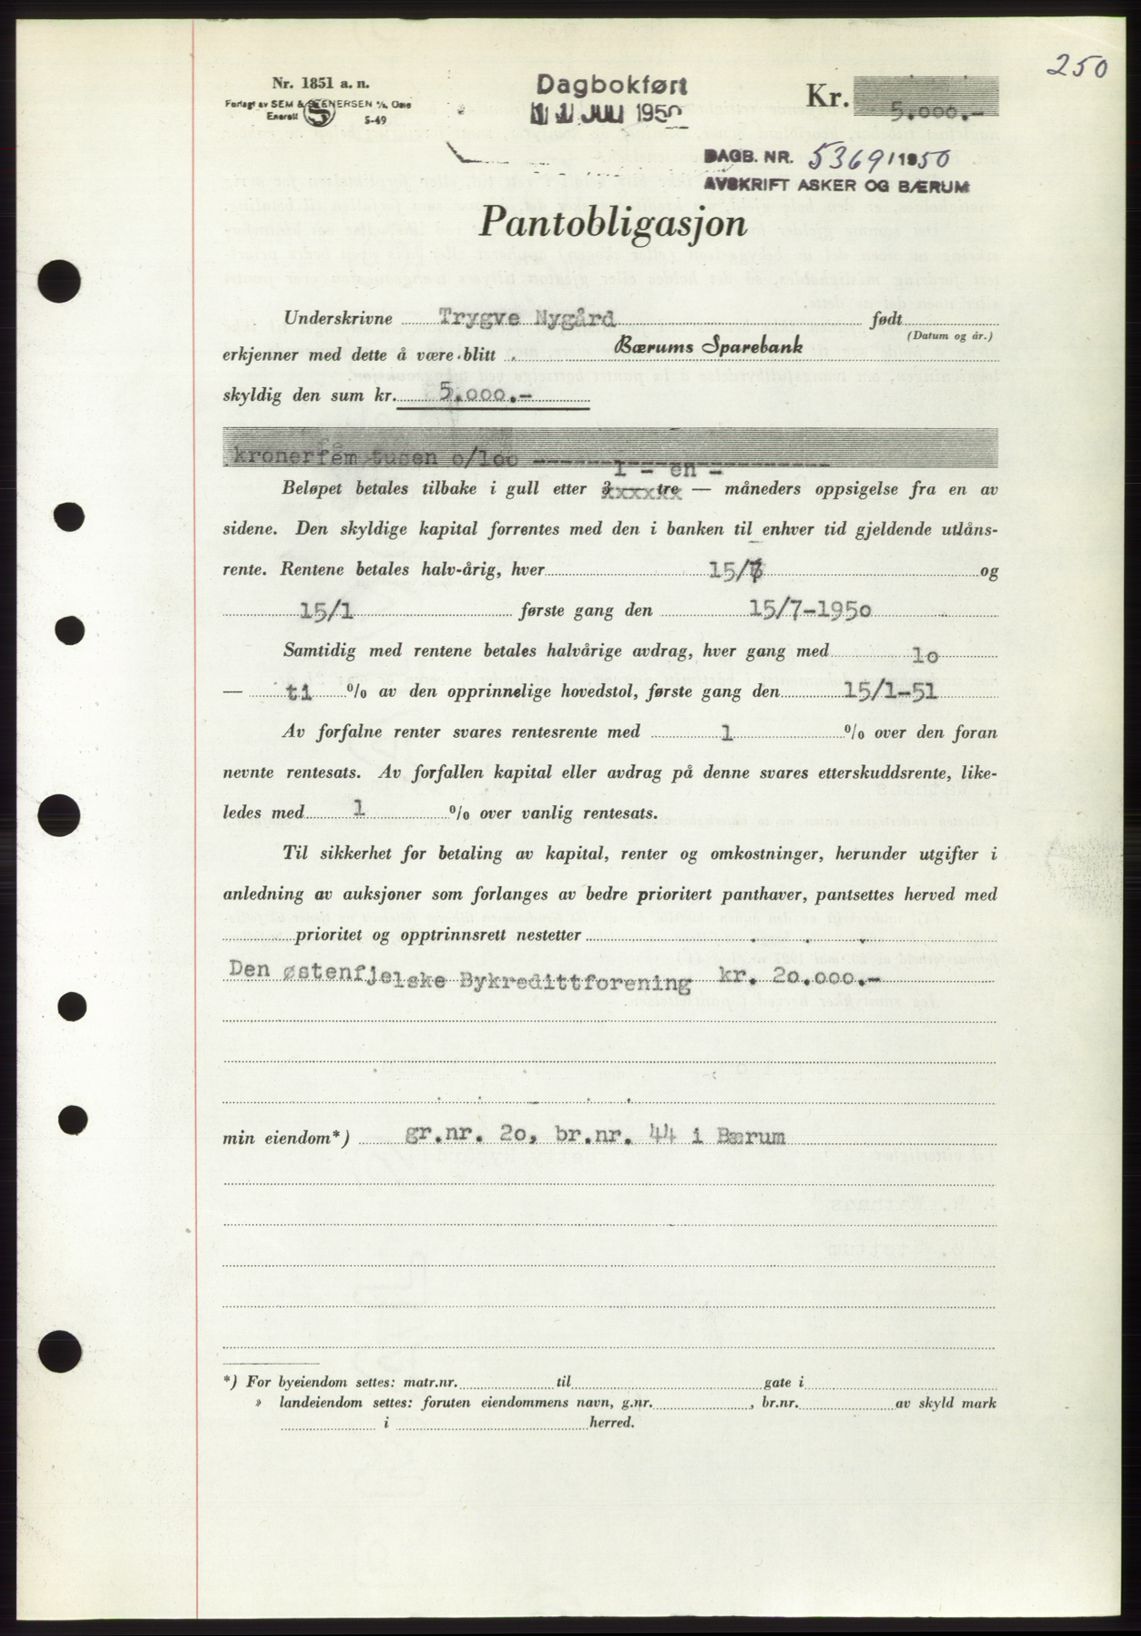 250
Nr. 1851 a. n.
Forlagt av SEM & STENERSEN A/S, Oslo
Enerett
S-49
Dagbokført
11 JULI 1950
Kr. 5.000.-
DAGB. NR. 5369/1950
AVSKRIFT ASKER OG BÆRUM
Pantobligasjon
Underskrivne Trygve Nygård født
(Datum og år.)
erkjenner med dette å være blitt Bærums Sparebank
skyldig den sum kr. 5.000.-
kronerfem tusen o/100 --------------------
1 - en -
Beløpet betales tilbake i gull etter 3 — tre — måneders oppsigelse fra en av
sidene. Den skyldige kapital forrentes med den i banken til enhver tid gjeldende utlåns-
rente. Rentene betales halv-årig, hver 15/7 og
15/1 første gang den 15/7-1950
Samtidig med rentene betales halvårige avdrag, hver gang med 10
— ti % av den opprinnelige hovedstol, første gang den 15/1-51
Av forfalne renter svares rentesrente med 1 % over den foran
nevnte rentesats. Av forfallen kapital eller avdrag på denne svares etterskuddsrente, like-
ledes med 1 % over vanlig rentesats.
Til sikkerhet for betaling av kapital, renter og omkostninger, herunder utgifter i
anledning av auksjoner som forlanges av bedre prioritert panthaver, pantsettes herved med
prioritet og opptrinnsrett nestetter
Den østenfjelske Bykredittforening kr. 20.000.-
min eiendom*) gr.nr. 20, br.nr. 44 i Bærum
*) For byeiendom settes: matr.nr. til gate i
» landeiendom settes: foruten eiendommens navn, g.nr. , br.nr. av skyld mark
i herred.